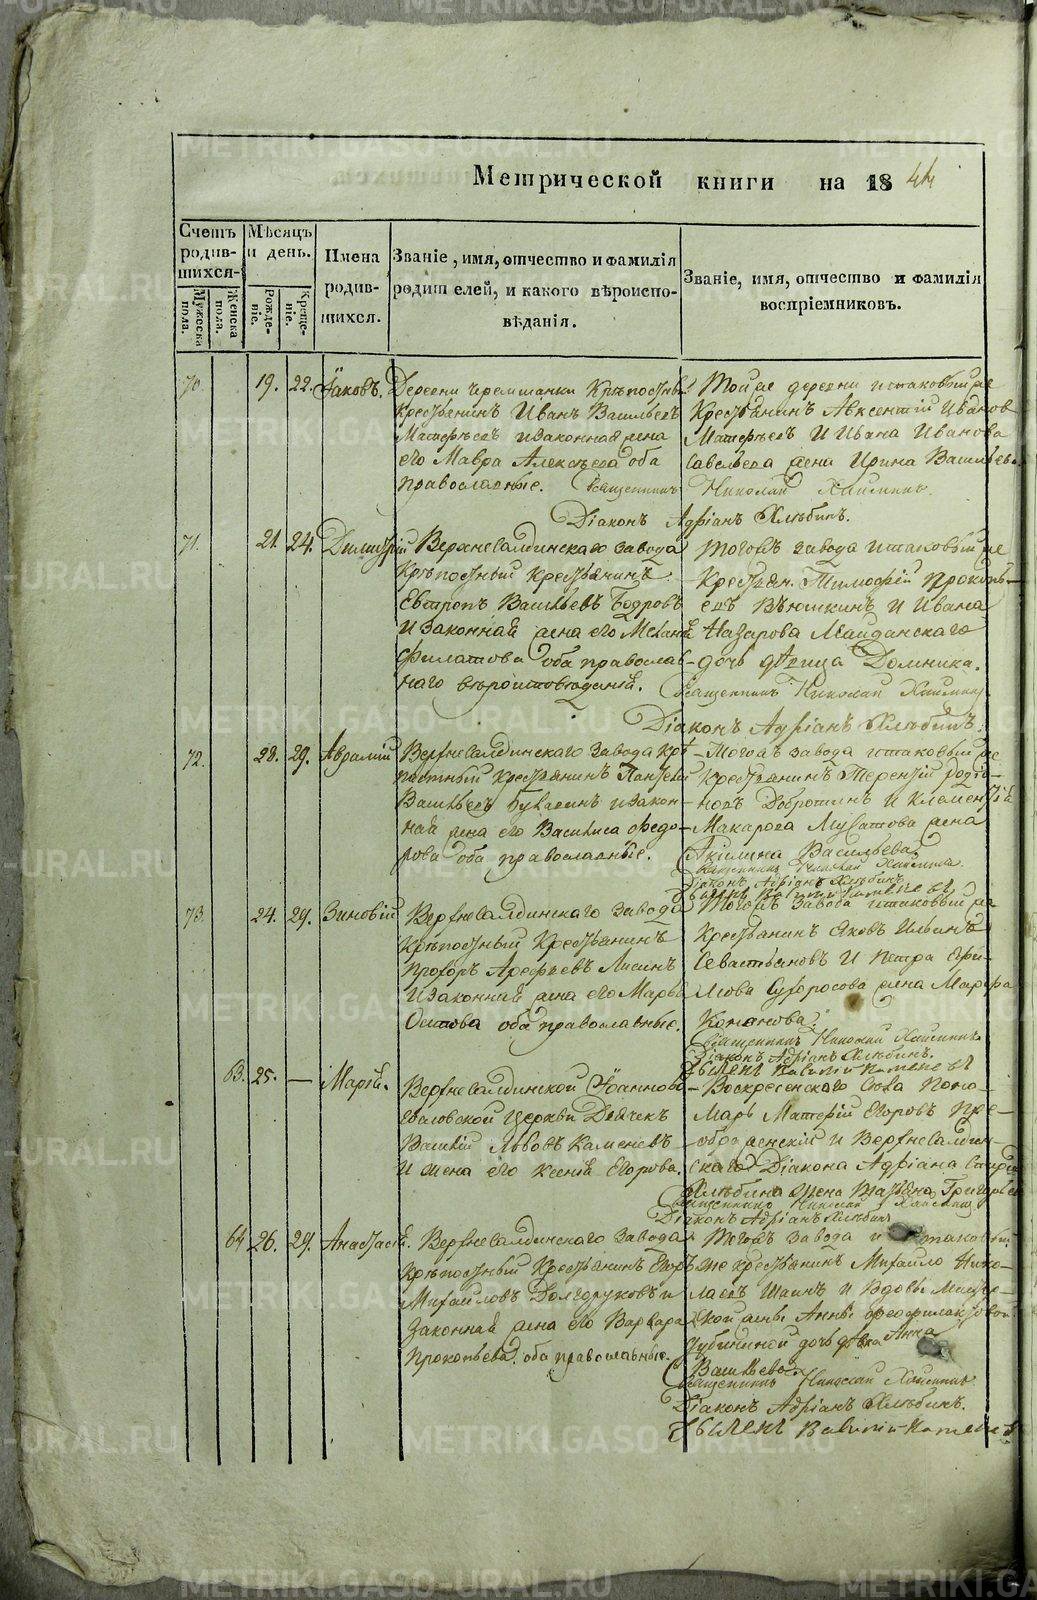 Метрической книги на 1844
Счетъ родив-шихся-
Мѣсяцъ и день.
Имена родив-шихся.
Званіе, имя, отчество и фамилія родителей, и какого вѣроиспо-вѣданія.
Званіе, имя, отчество и фамилія воспріемниковъ.
Мужеска пола.
Женска пола.
Рожде-ніе.
Креще-ніе.
70. 19. 22. Іаковъ.
Деревни Черемшанки Крѣпостный
Крестьянинъ Иванъ Васильевъ
Матвѣевъ и законная жена
его Мавра Алексѣева оба
православные.
Той же деревни и таковый же
Крестьянинъ Авксентій Ивановъ
Матвѣевъ И Ивана Иванова
Савельева жена Ирина Васильева
Священникъ Николай
Діаконъ Адріанъ Хлѣбинъ.
71. 21. 24. Димитрій
Верхнесалдинскаго завода
Крѣпостный Крестьянинъ
Евтропъ Васильевъ Бодровъ
И законная жена его Меланія
Филатова оба православ-
наго вѣроисповѣданія.
Тогожъ завода и таковый же
Крестьян. Тимофей Прокопь-
евъ Вѣюшкинъ И Ивана
Назарова Майданскаго
дочь дѣвица Домника.
Священникъ Николай
Діаконъ Адріанъ Хлѣбинъ.
72. 28. 29. Авраамій
Верхнесалдинскаго завода Крѣ-
постный Крестьянинъ Пантелей
Васильевъ и закон-
ная жена его Василиса Федо-
рова оба православные.
Тогожъ завода и таковый же
Крестьянинъ Терентій Родіо-
новъ Добротинъ И Климентія
Макарова Мусатова жена
Акилина Васильева.
Священникъ Николай
Діаконъ Адріанъ Хлѣбинъ.
73. 24. 29. Зиновій
Верхнесалдинскаго завода
Крѣпостный Крестьянинъ
Прохоръ Арефьевъ Лисинъ
И законная жена его Марья
оба православные.
Тогожъ завода и таковый же
Крестьянинъ Яковъ Ильинъ
Севастьяновъ И Петра Ефи-
мова Суторосова жена Марфа
Кононова.
Священникъ Николай
Діаконъ Адріанъ Хлѣбинъ.
63. 25. — Марія.
Верхнесалдинской Іоанно-
Богословской церкви Дьячекъ
Василій Львовъ Каменевъ
И жена его Ксенія Егорова.
Воскресенскаго Села Поно-
марь Матвій Егоровъ Пре-
ображенскій И Верхнесалдин-
скаго Діакона Адріана
Хлѣбина жена Татьяна Григорьева
Священникъ Николай
Діаконъ Адріанъ Хлѣбинъ
64 26. 29. Анастасія.
Верхнесалдинскаго завода
Крѣпостный Крестьянинъ Егоръ
Михайловъ Долгоруковъ и
законная жена его Варвара
Прокопьева. оба православные.
Тогожъ завода и таковый
же крестьянинъ Михайло Нико-
лаевъ Шаинъ И Вдовы
Анны Феофилактовой
Чубининой дочь дѣвка Анна
Васильева.
Священникъ Николай
Діаконъ Адріанъ Хлѣбинъ.
METRIKI.GASO-URAL.RU